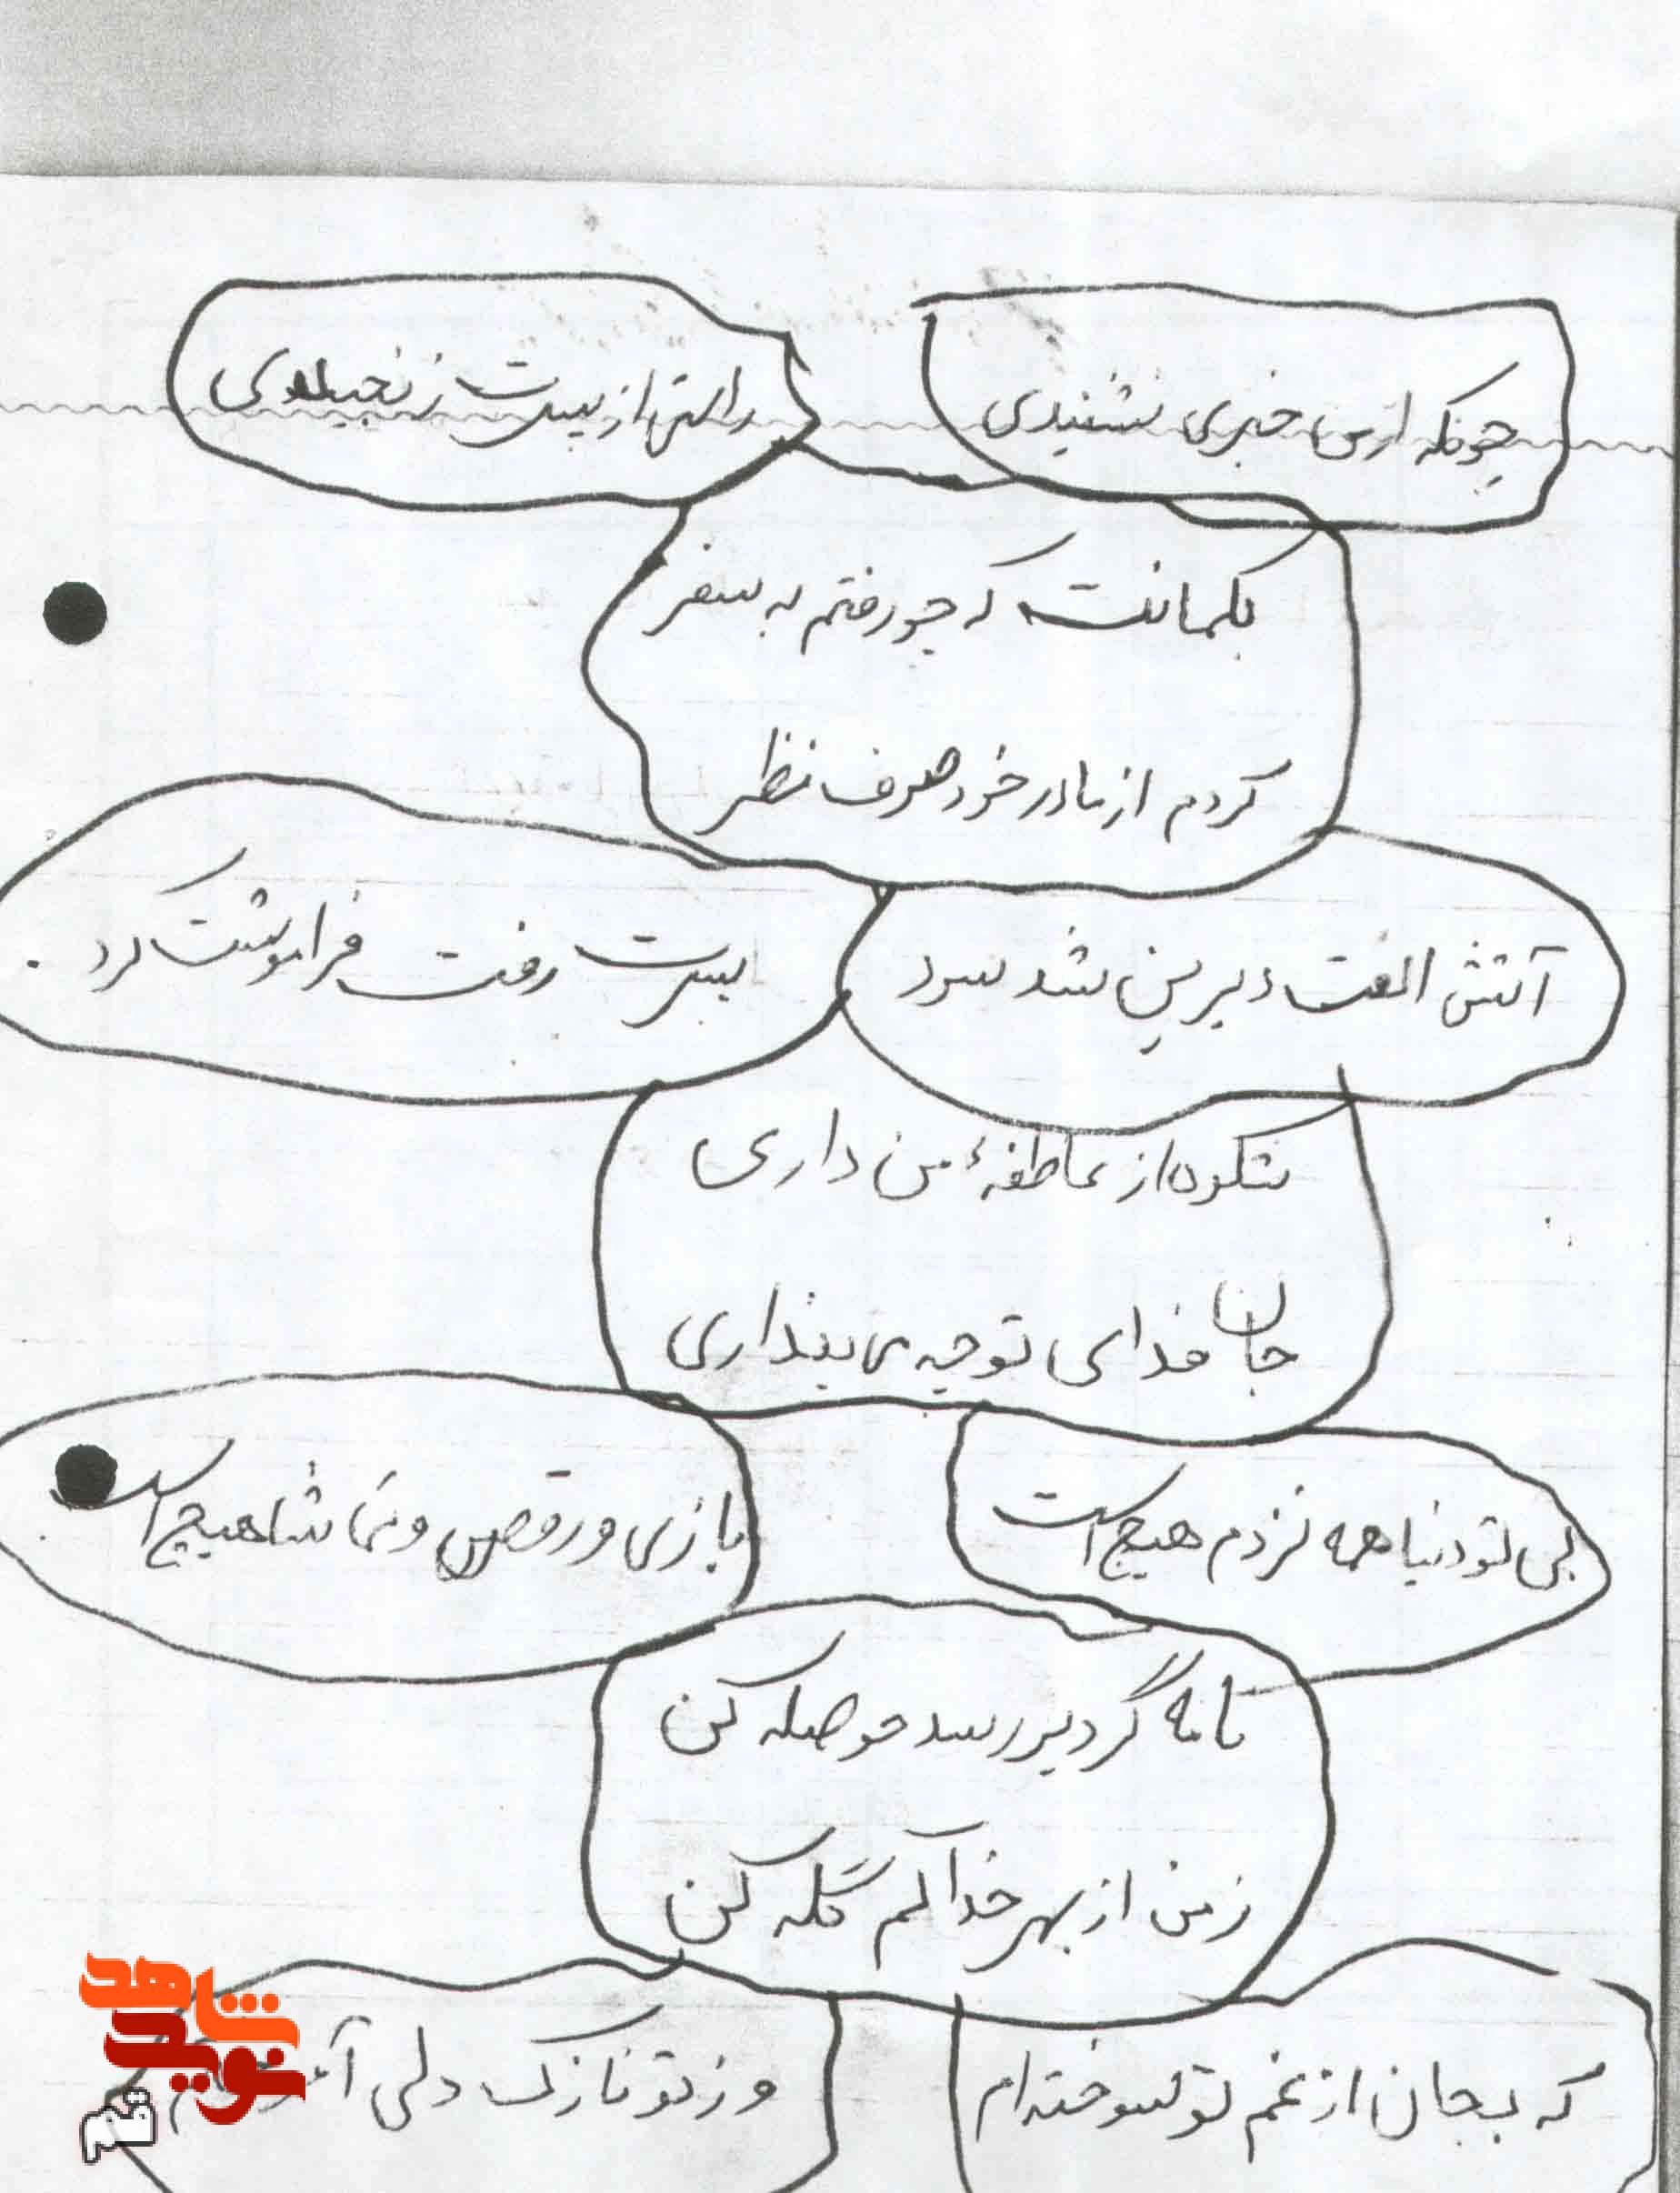 چونکه از من خبری نشنیدی
راستی از پسرت رنجیدی
بگمانت که چو رفتم به سفر
کردم از مادر خود صرف نظر
آتش الفت دیرین شد سرد
پسرت رفت فراموشت کرد.
شکوه از عاطفهٔ من داری
جان فدای تو چه می پنداری
بی تو دنیا همه نزدم هیچ است
بازی و رقص و تماشا هیچ است
نامه گر دیر رسد حوصله کن
زمن از بهر خدا کم گله کن
که بجان از غم تو سوخته ام
وز تو نازک دلی
شاهد
نوید
قم